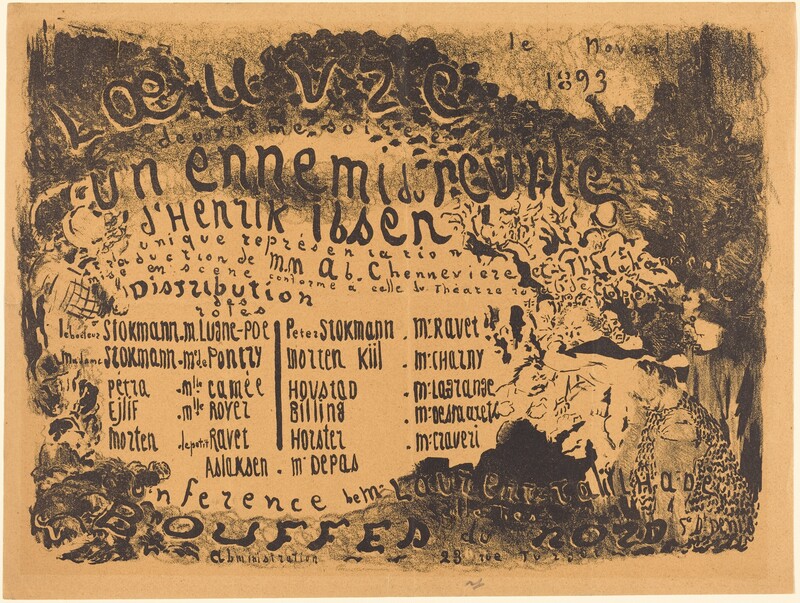 le Novemb
1893
L'ŒUVRE
deuxième soirée
un ennemi du peuple
d'HENRIK Ibsen
unique représentation
traduction de M.M Ab. Chennevière et
en scène conforme à celle du Théatre
Distribution
des
rôles
le docteur Stokmann . m. Lugné-poe
madame Stokmann . mme de Pontry
petra . mlle camée
Ejlif . mlle Royer
morten . le petit Ravet
Aslaksen . mr DEPAS
Peter Stokmann . mr Ravet
morten Kiil . mr charny
Hovstad . mr Lagrange
Billing . mr
Horster . mr craveri
Conférence de Mr Laurent-Tailhade
BOUFFES du NORD St Denis
Administration 23 rue Tu